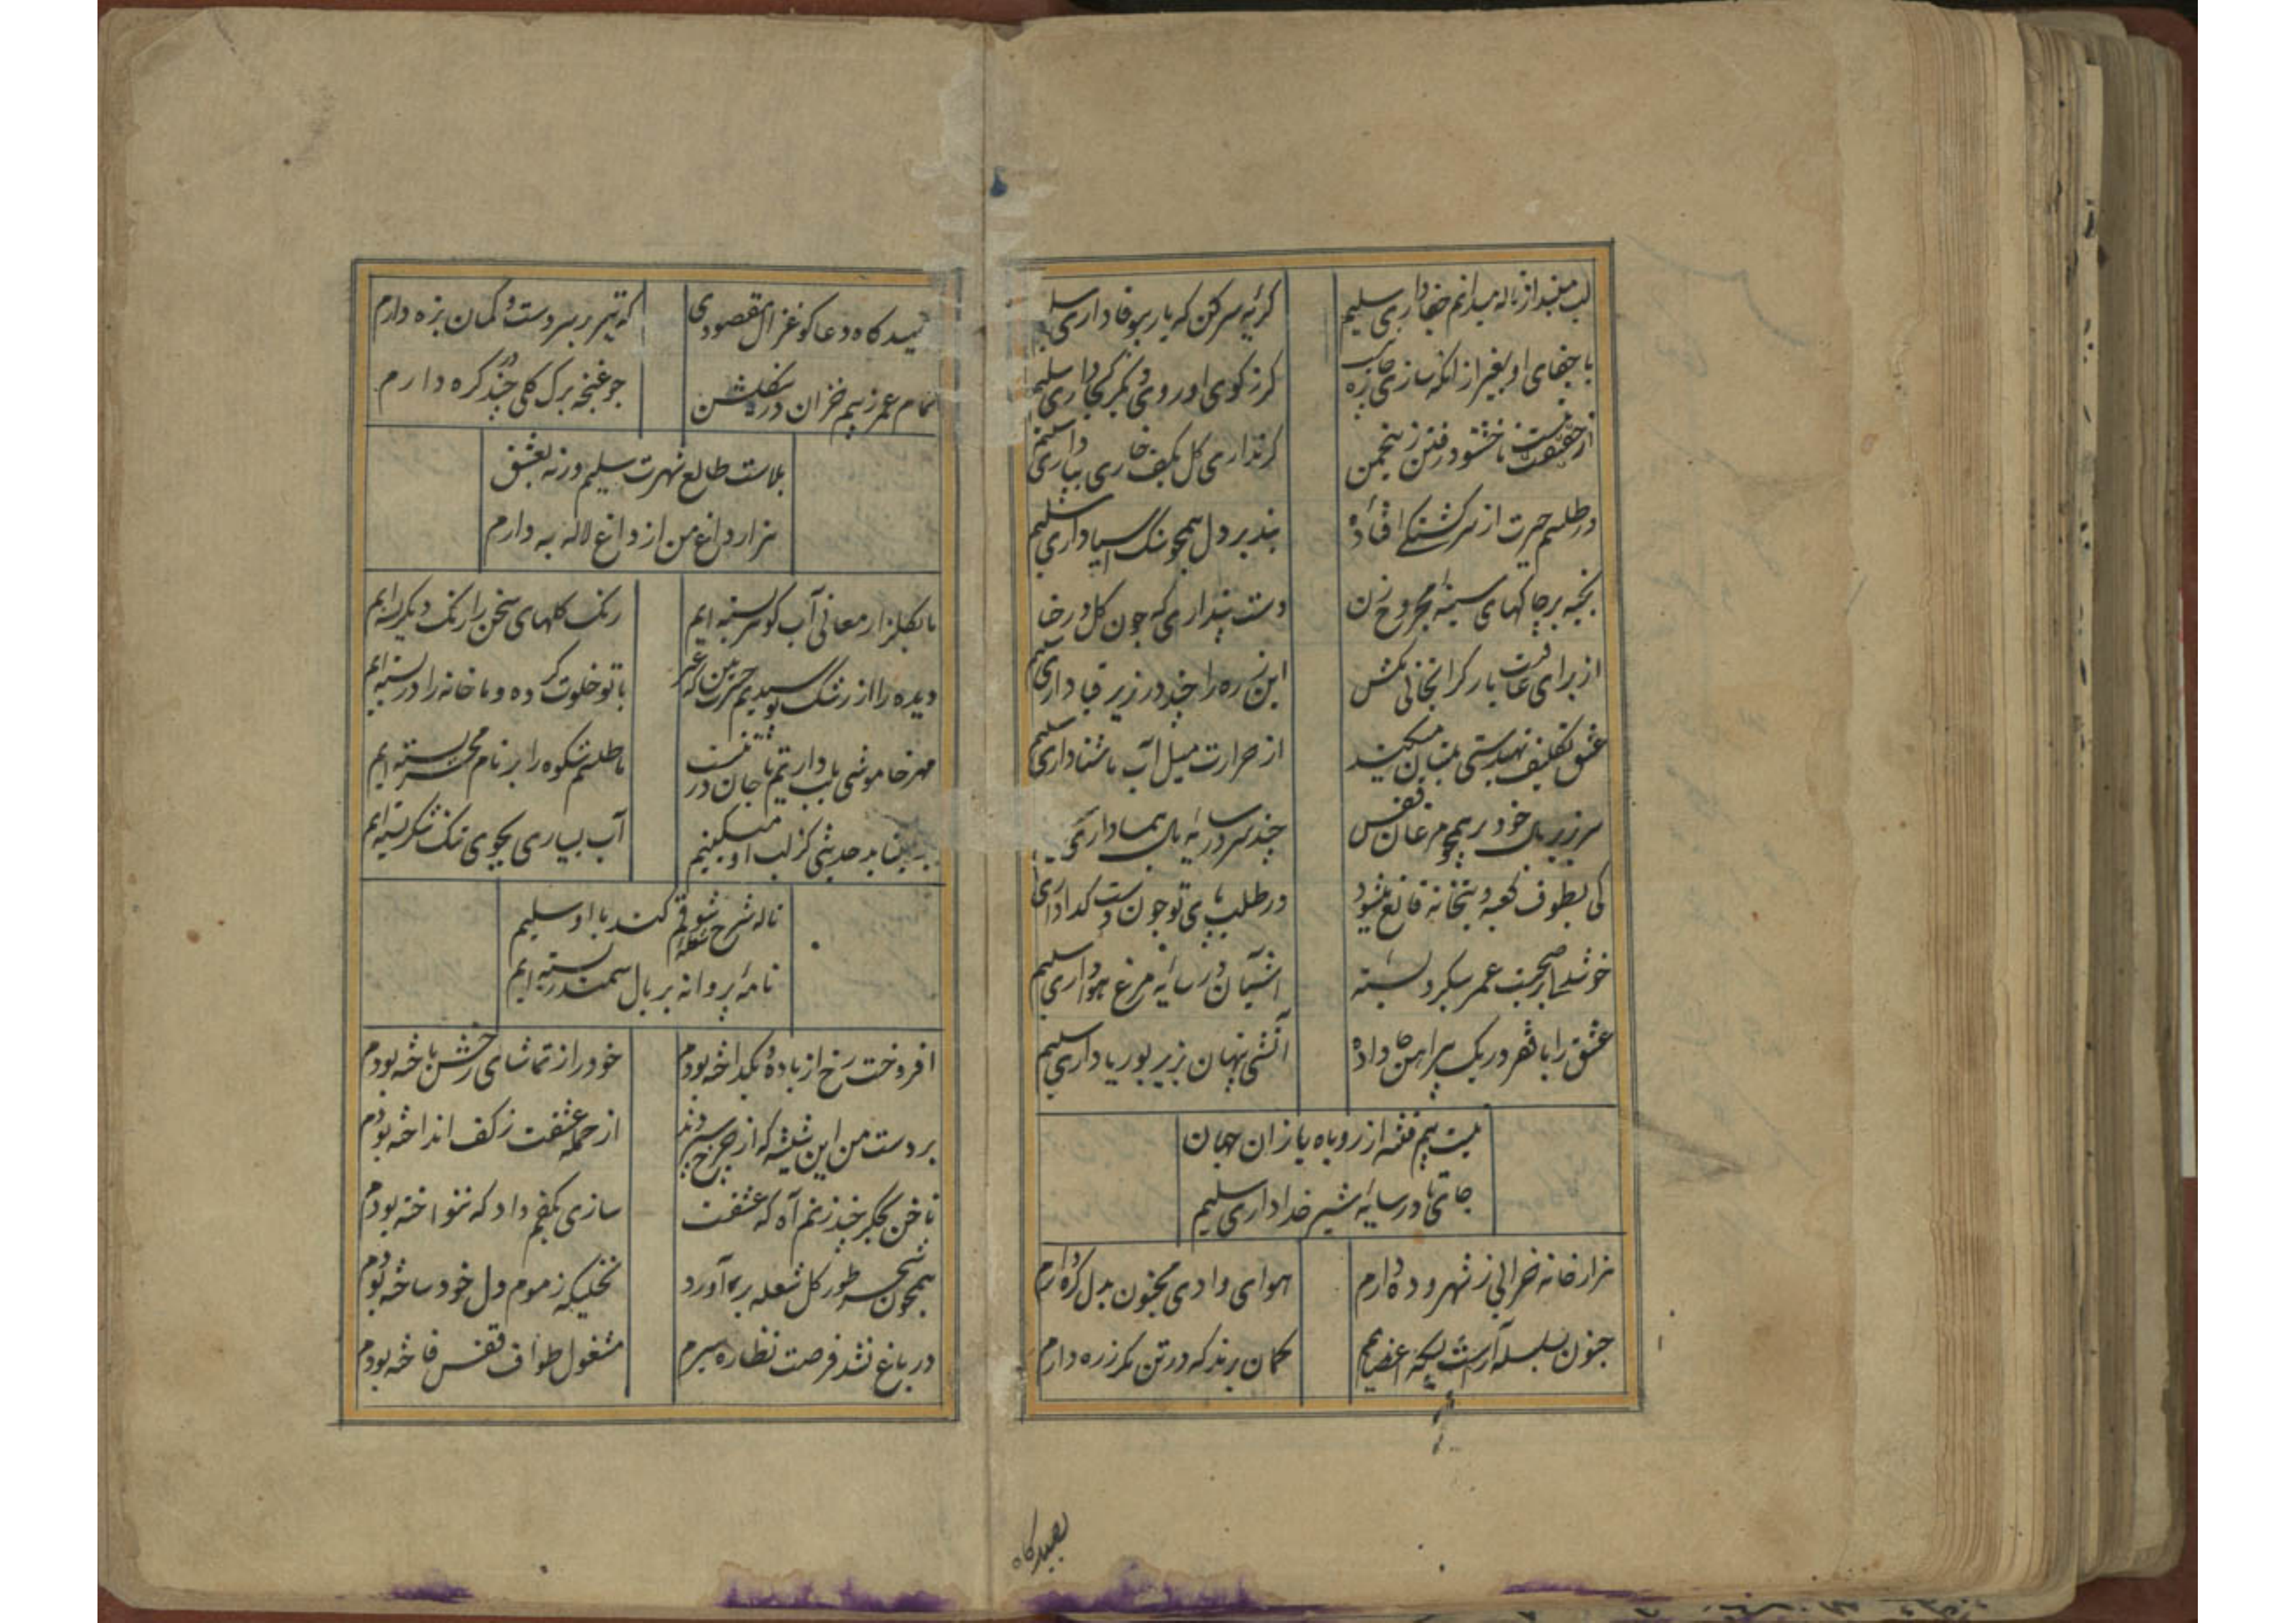 لب مبند از ناله میدانم جفا داری سلیم
گریه سر کن که یار بیوفا داری سلیم
با جفای او بغیر از آنکه سازی چاره
گر ز کوی او روی دیگر کجا داری سلیم
از حقیقت نیست ناخشنود رفتن زین چمن
گر نداری گل بکف خاری بپا داری سلیم
در طلسم حیرت از سرگشتگی افتاده
بند بر دل همچو سنگ آسیا داری سلیم
بخیه بر چاکهای سینه مجروح زن
دست پنداری که چون گل در حنا
از برای غارتت بار گرانجانی مکش
این زره را چند در زیر قبا داری سلیم
عشق تکلیف تهیدستی بتیان میکنید
از حرارت میل آب ناشتا داری سلیم
سر بزیر بال خود بر همچو مرغان قفس
چند سر در سایه بال هما داری
کی بطوف کعبه و بتخانه قانع میشود
در طلب پای تو چون دست گدا داری
خوشدلی از صحبت عمر سبکرو بسته
آشیان در سایه مرغ هوا داری سلیم
عشق را با فقر در یک پیراهن جا داده
آتشی پنهان بزیر بوریا داری سلیم
نیست بیم فتنه از روباه بازان جهان
جای تا در سایه شیر خدا داری سلیم
هزار خانه خرابی ز شهر و ده دارم
هوای وادی مجنون بدل گره دارم
جنون سلسله آراست بسکه اعضایم
گمان برند که در تن مگر زره دارم
بصیدگاه
بصیدگاه دعا کو غزال مقصودی
که تیر بر سر دست و کمان بزه دارم
تمام عمر ز بیم خزان درین گلشن
چو غنچه برگ گلی چند در گره دارم
بلاست طالع شهرت سلیم ورنه بعشق
هزار داغ من از داغ لاله به دارم
ما بگلزار معانی آب گوهر بسته ایم
رنگ گلهای سخن را رنگ دیگر بسته ایم
دیده را از رشک پوشیدیم حسرت بین که غیر
با تو خلوت کرده و ما خانه را در بسته ایم
مهر خاموشی بلب داریم تا جان در تنست
ما طلسم شکوه را بر نام محشر بسته ایم
حدیثی کز لب او میکنیم
آب بسیاری بجوی تنگ شکر بسته ایم
ناله شرح شوقم کند با او سلیم
نامه پروانه بر بال سمندر بسته ایم
افروخت رخ از باده و بگداخته بودم
خود را ز تماشای رخش باخته بودم
بر دست من این شیشه که از چرخ سپردند
از حمله عشقت ز کف انداخته بودم
ناخن بجگر چند زنم آه که عشقت
سازی بکفم داد که ننواخته بودم
همچون شجر طور گل شعله برآورد
نخلیکه ز موم دل خود ساخته بودم
در باغ نشد فرصت نظاره سروم
مشغول طواف قفس فاخته بودم